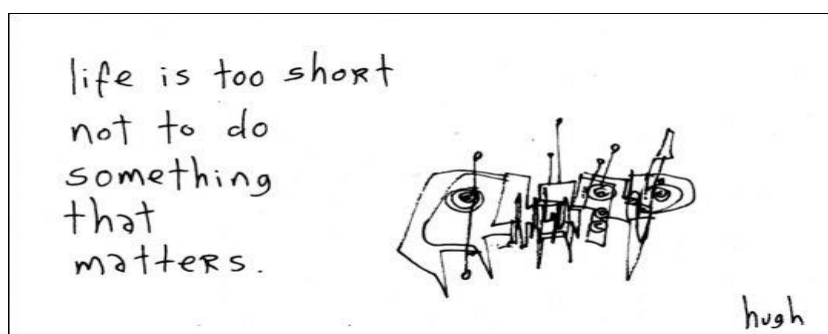 life is too short
not to do
something
that
matters.
hugh